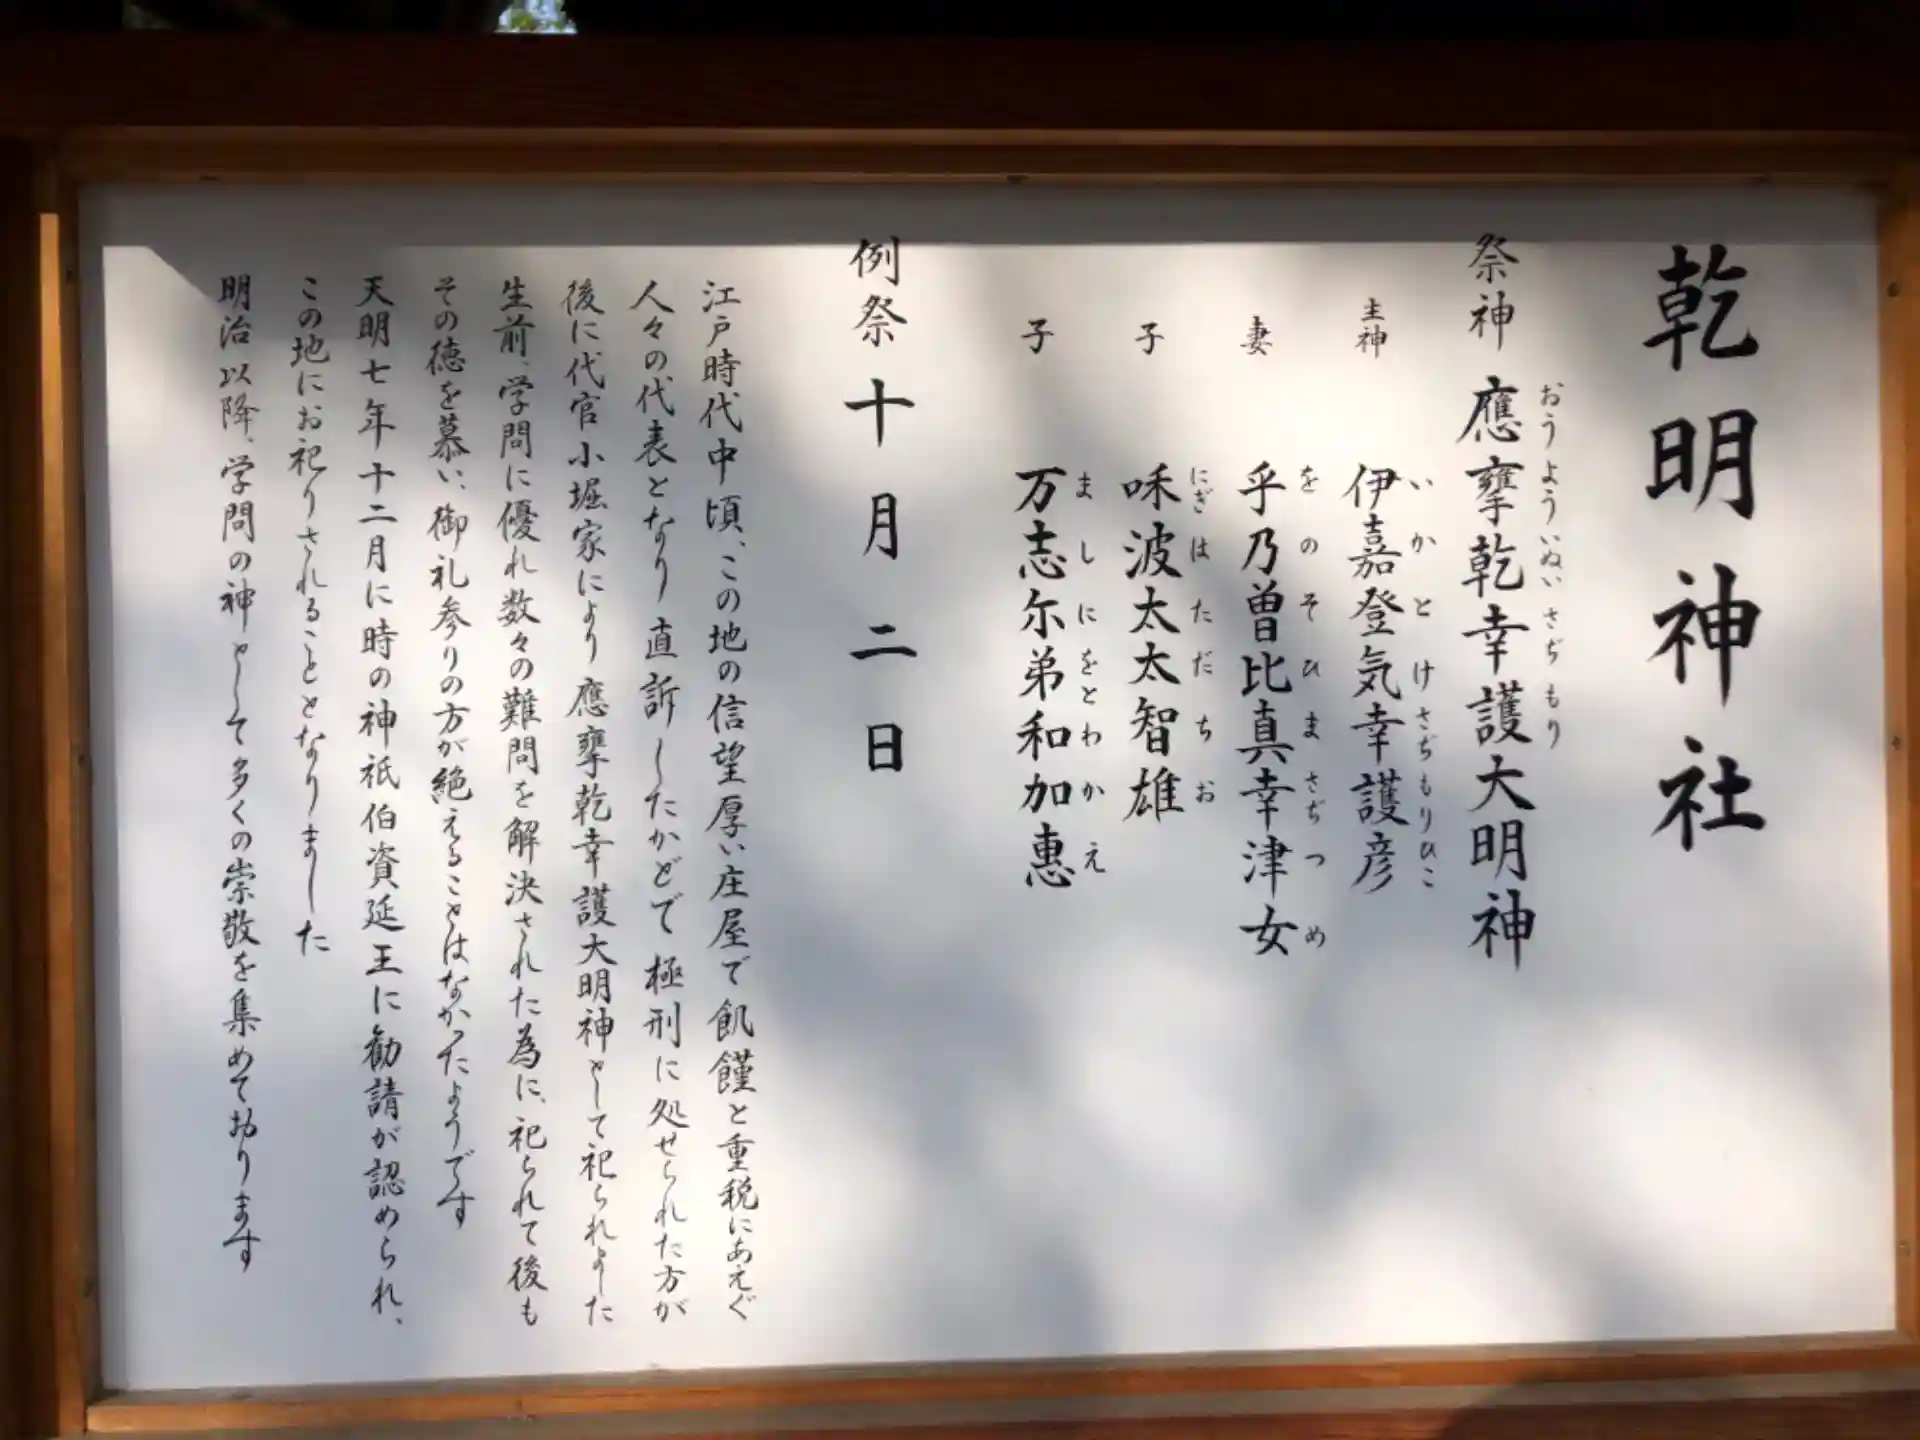 乾明神社
祭神 應擘乾幸護大明神
おうよういぬいさぢもり
主神 伊嘉登気幸護彦
いかとけさぢもりひこ
妻 乎乃曽比真幸津女
をのそひまさぢつめ
子 咊波太太智雄
にぎはただちお
子 万志尓弟和加惠
ましにをとわかえ
例祭 十月二日
江戸時代中頃、この地の信望厚い庄屋で飢饉と重税にあえぐ
人々の代表となり直訴したかどで極刑に処せられた方が
後に代官小堀家により應擘乾幸護大明神として祀られました
生前、学問に優れ数々の難問を解決された為に、祀られて後も
その徳を慕い、御礼参りの方が絶えることはなかったようです
天明七年十二月に時の神祇伯資延王に勧請が認められ、
この地にお祀りされることとなりました
明治以降、学問の神として多くの崇敬を集めております